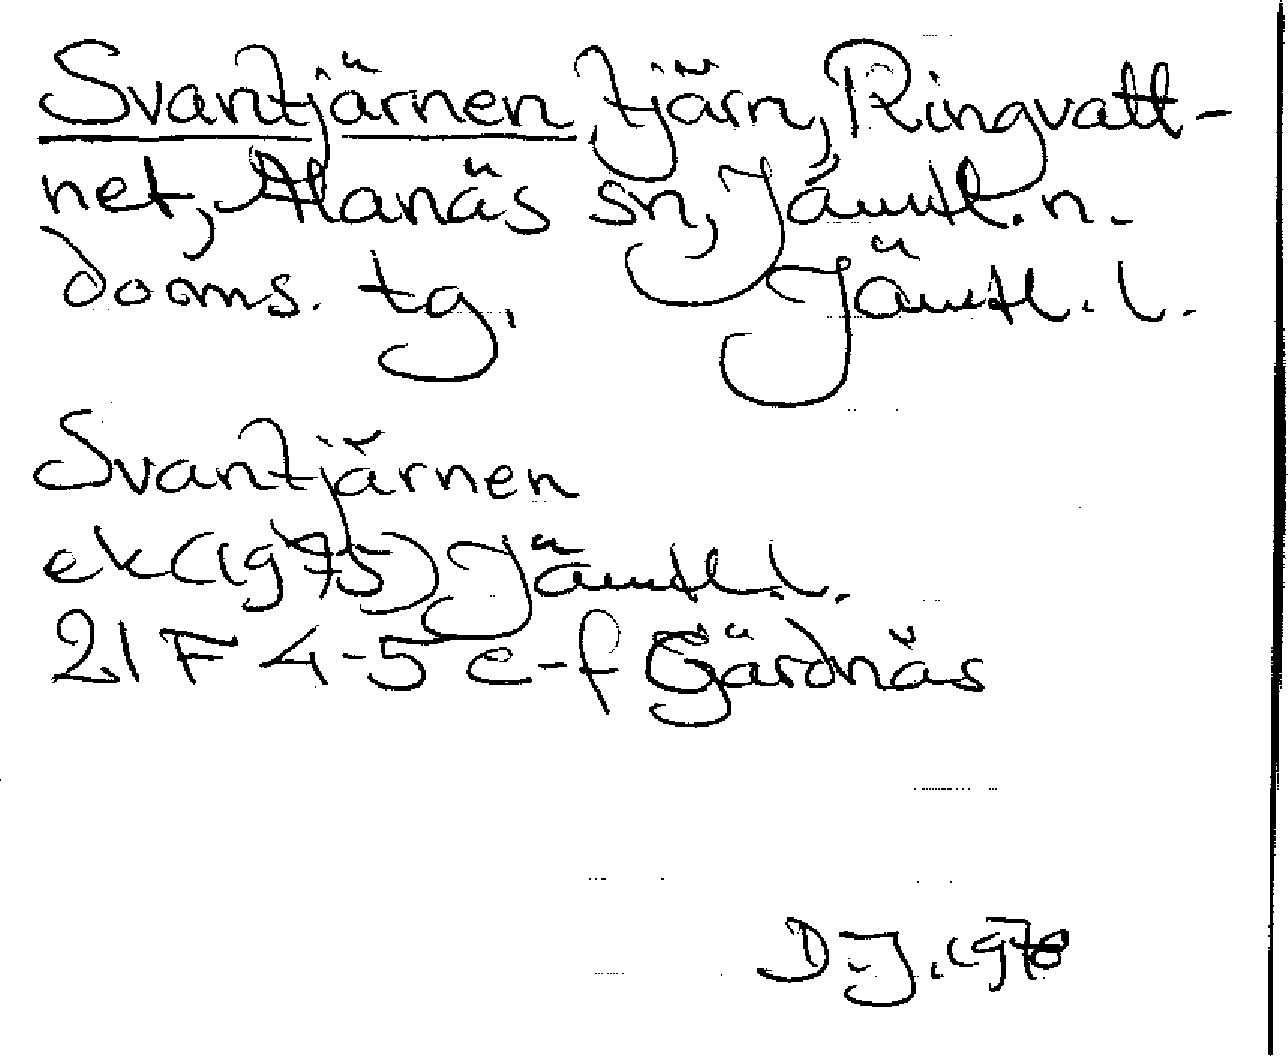 Svantjärnen, tjärn, Ringvatt-
net, Alanäs sn, Jämtl. n.
doms. tg, Jämtl. l.
Svantjärnen
ek (1975) Jämtl. l.
21 F 4-5 e-f Gärdnäs
D-J. 1978